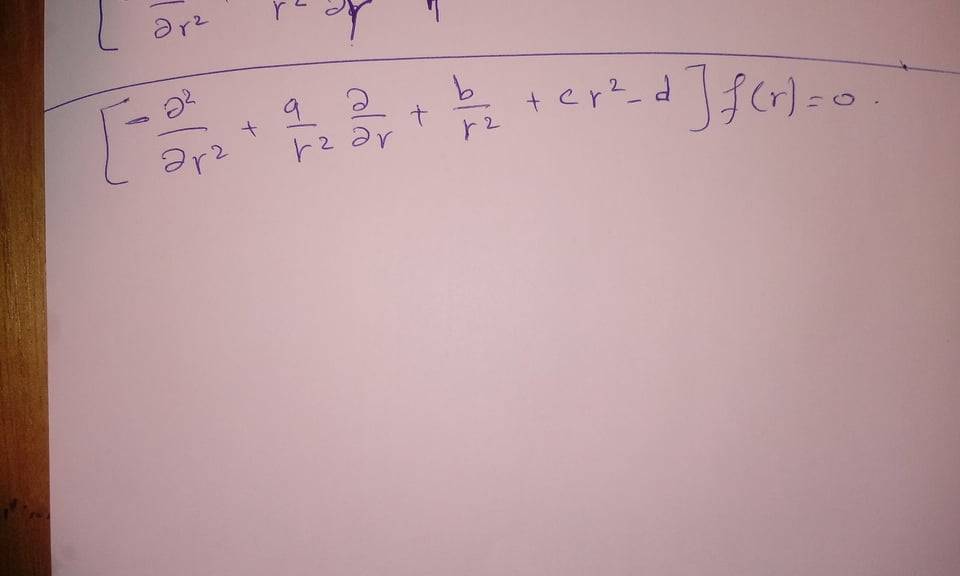 [ ∂r² r² ∂r
[ - ∂²/∂r² + a/r² ∂/∂r + b/r² + cr² - d ] f(r) = 0.